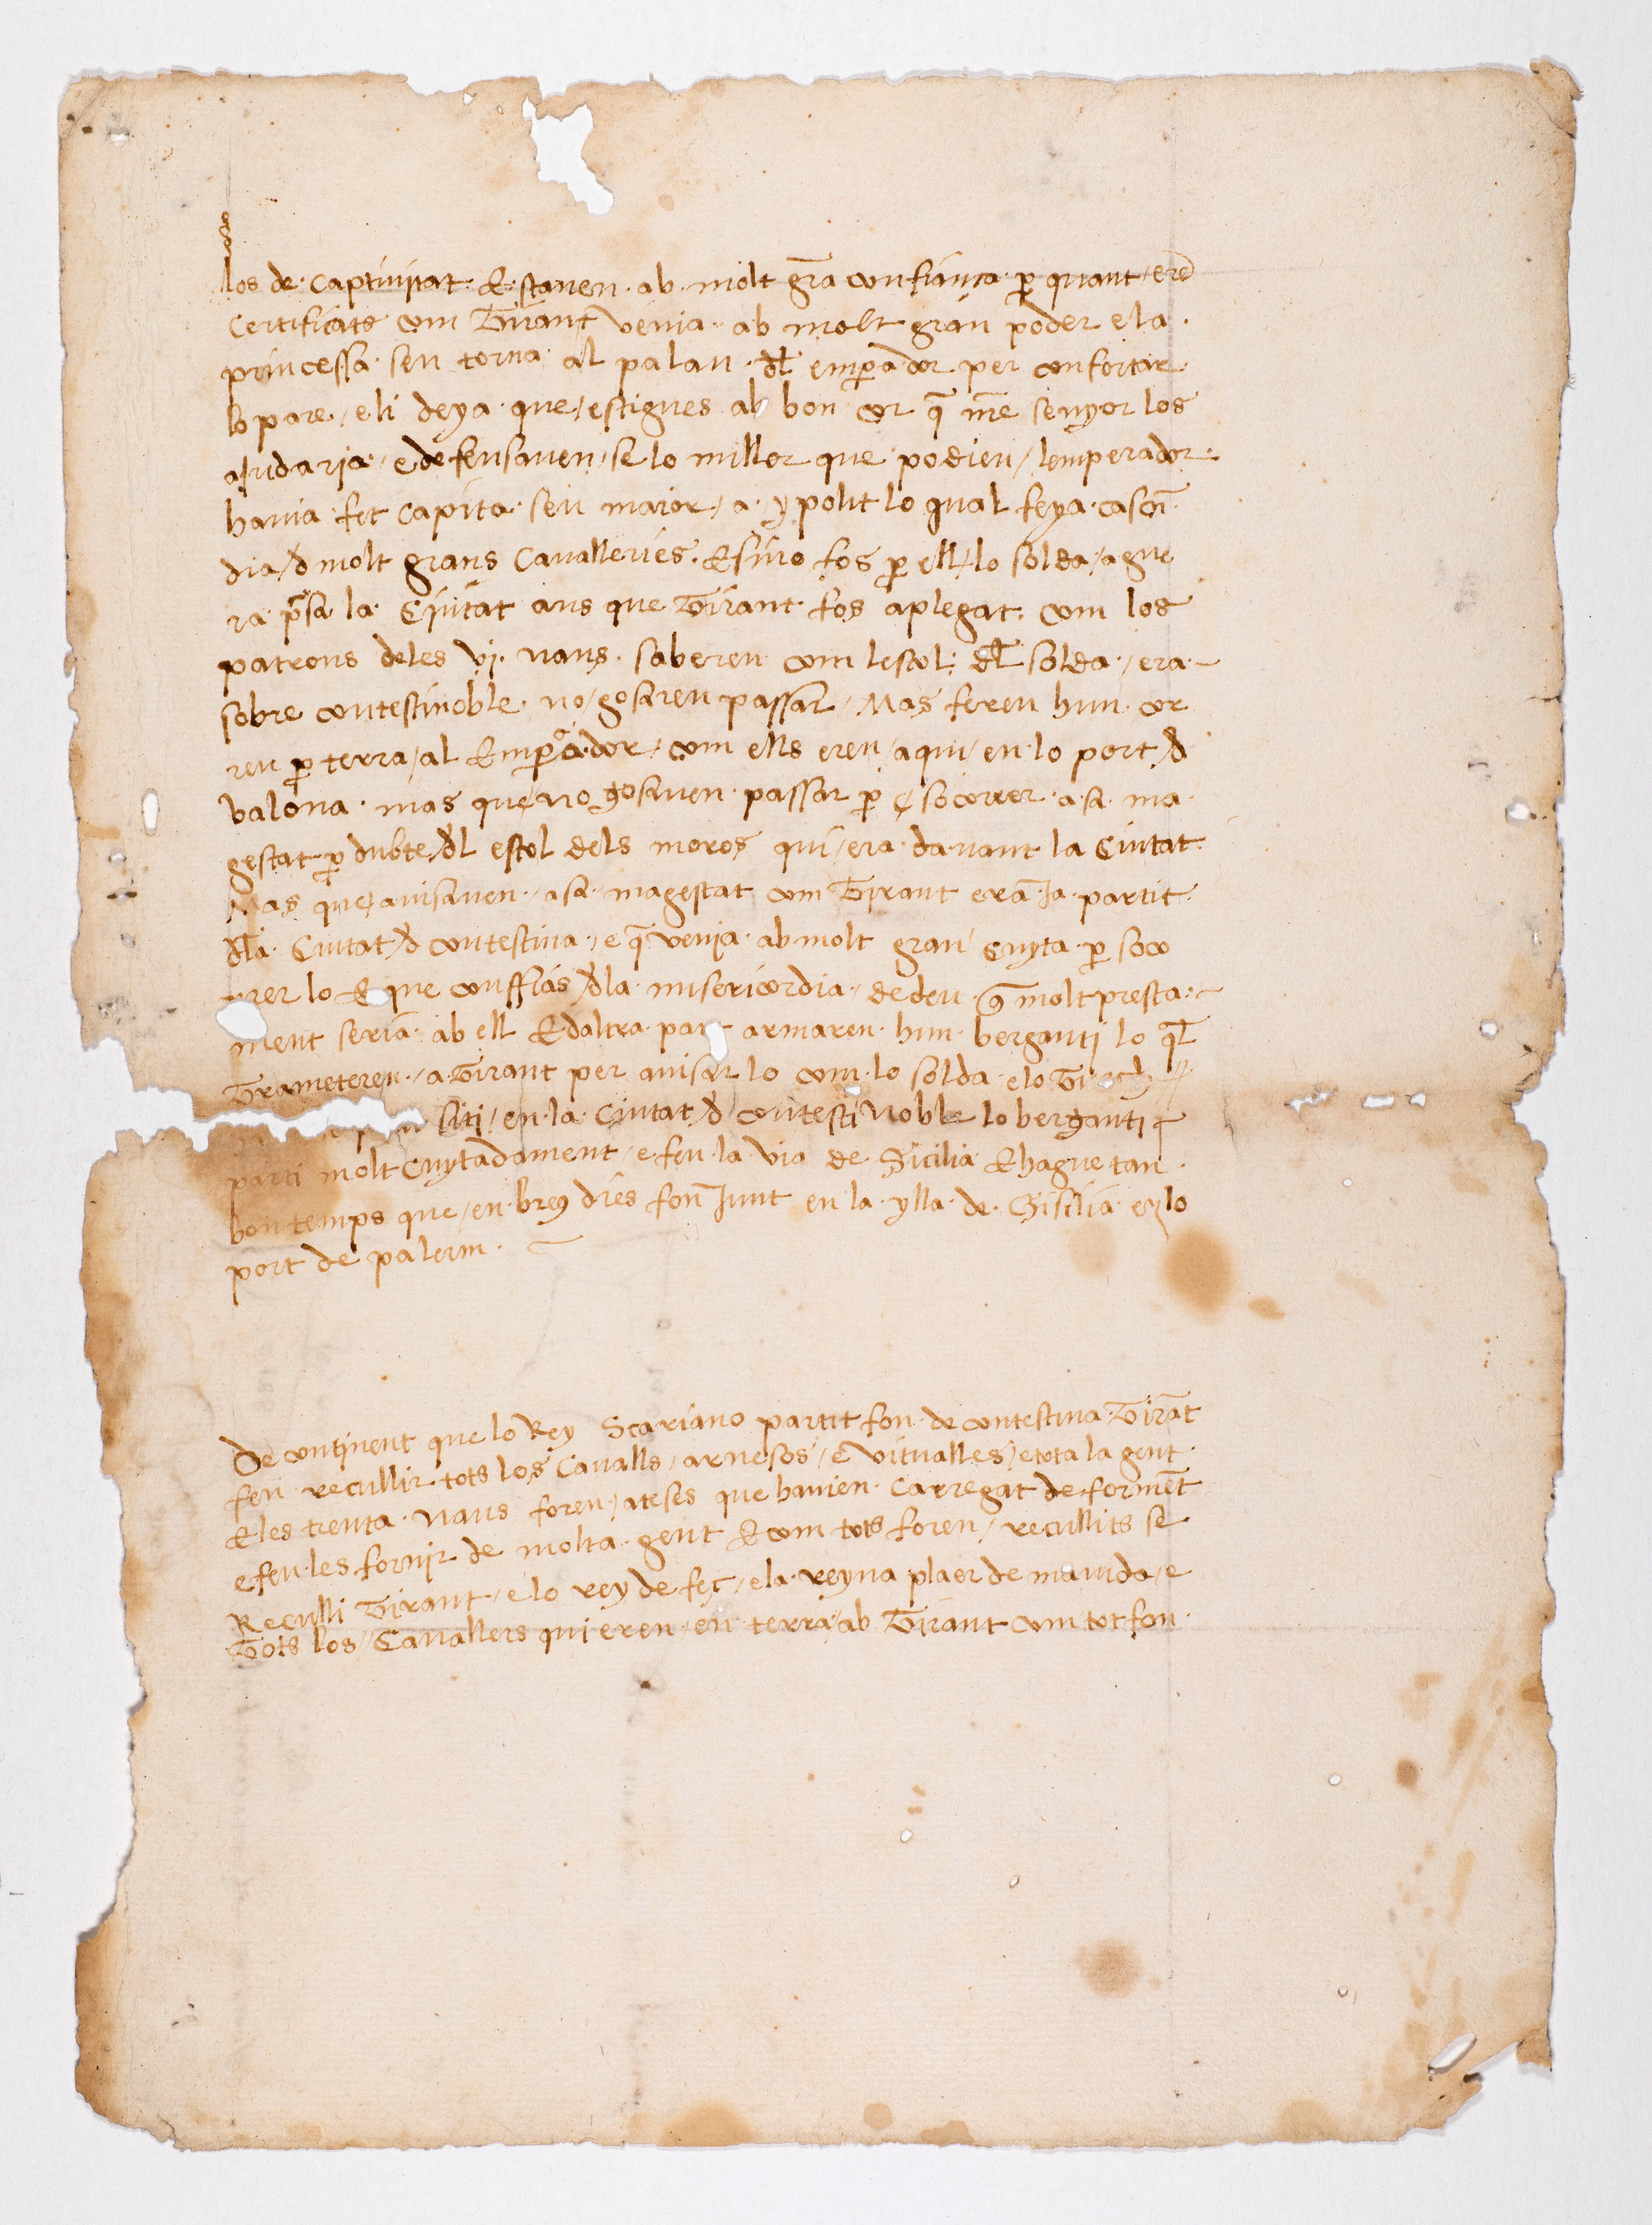 los de · captiuitat · E · stauen · ab · molt grā confiança · ꝑ quant / erē
certificats com Tirant venia · ab molt gran poder e la ·
princessa · sen torna · al palau · dł emꝑador per confortar ·
lo pare / e li deya · que / estigues ab bon cor q̄ nr̄e senyor los
aiudaria · / e defensauen / se lo millor que podien / lemperador ·
hauia fet capita · seu maior / a · ypolit lo qual feya · cascū
dia / d molt grans Caualleries · E sino fos ꝑ ell / lo solda / ague
ra p̄sa la Ciutat ans que Tirant fos aplegat · com los
patrons deles vj · naus · saberen com lestol · dł solda · / era ·
sobre contestinoble · no / gosaren passar / Mas feren hun cor
reu ꝑ terra / al Emꝑador / com ells eren / aqui / en · lo port / d
valona · mas que / no gosauen passar ꝑ socorrer · a · sa · ma ·
gestat ꝑ dubte / dl estol dels moros qui / era · dauant la Ciutat ·
Mas que / auisauen · / asa · magestat com Tirant era Ja · partit ·
dła · Ciutat / d contestina · / e q̄ venia · ab molt gran cuyta · ꝑ soco
rrer lo E que conffiás / dla · misericordia · de deu · q̄ molt presta ·
ment seria · ab ell E daltra · part armaren · hun · berganti lo qł
Trameteren · / a · Tirant per auisar lo com · lo solda · e lo
siti / en · la · Ciutat / d contesti Noble lo berganti
parti molt cuytadament / e feu · la · via de Sicilia E hague tan ·
bon temps que / en · breu dies fon Junt en la · ylla · de · Sisilia en lo
port de palerm ·
De continent que lo Rey Scariano partit fon · de contestina · Tirāt
feu recullir · tots los Caualls / arnesos / e vitualles / e tota la gent ·
E les trenta · naus foren / ateses que hauien · carregat de formēt
e feu · les fornir de molta · gent E com tots foren / recullits se
Reculli Tirant / e lo rey de feç / e la · reyna plaer de ma vida / e
Tots los / Cauallers qui eren · en terra / ab Tirant com tot fon ·